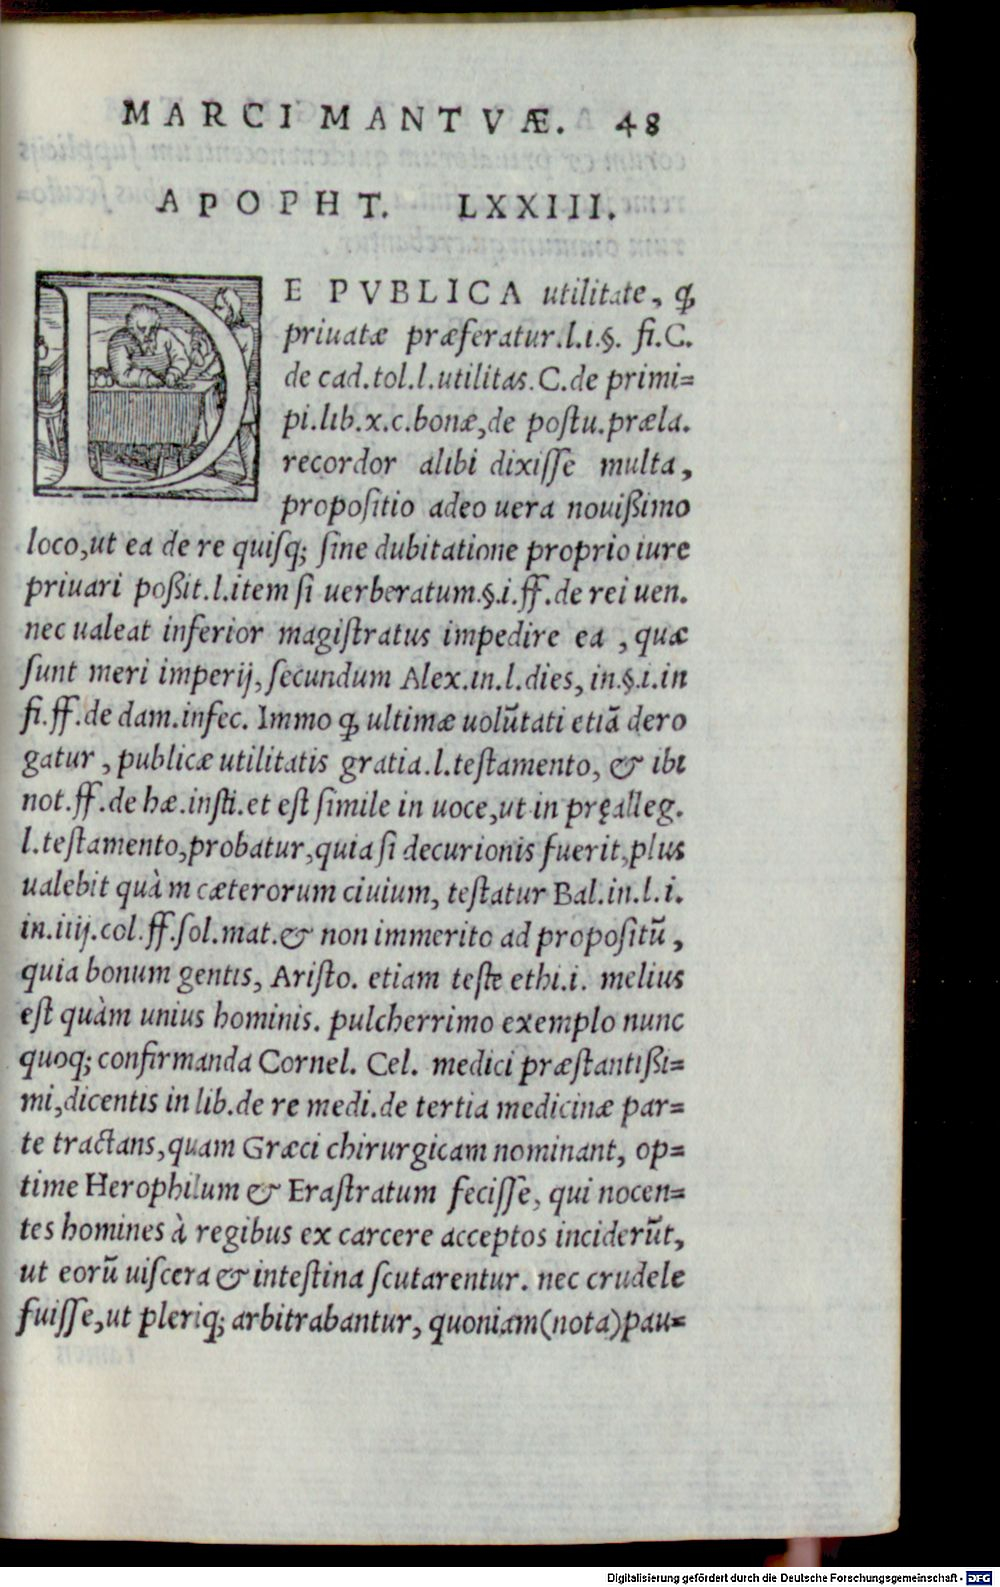 MARCI MANTVÆ. 48
APOPHT. LXXIII.
DE PVBLICA utilitate, ꝙ
priuatæ præferatur.l.1.§. fi.C.
de cad.tol.l.utilitas.C.de primi=
pi.lib.x.c.bonæ,de poſtu.præla.
recordor alibi dixiſſe multa,
propoſitio adeo uera nouißimo
loco,ut ea de re quiſq; ſine dubitatione proprio iure
priuari poßit.l.item ſi uerberatum.§.i.ff.de rei uen.
nec ualeat inferior magiſtratus impedire ea , quæ
ſunt meri imperij, ſecundum Alex.in.l.dies, in.§.i.in
fi.ff.de dam.infec. Immo ꝙ ultimæ uolũtati etiã dero
gatur , publicæ utilitatis gratia.l.teſtamento, & ibi
not.ff.de hæ.inſti.et eſt ſimile in uoce,ut in pręalleg.
l.teſtamento,probatur,quia ſi decurionis fuerit,plus
ualebit quàm cæterorum ciuium, teſtatur Bal.in.l.i.
in.iiij.col.ff.ſol.mat.& non immerito ad propoſitũ ,
quia bonum gentis, Ariſto. etiam teſte ethi.i. melius
eſt quàm unius hominis. pulcherrimo exemplo nunc
quoq; confirmanda Cornel. Cel. medici præſtantißi=
mi,dicentis in lib.de re medi.de tertia medicinæ par=
te tractans,quam Græci chirurgicam nominant, op=
time Herophilum & Eraſtratum feciſſe, qui nocen=
tes homines à regibus ex carcere acceptos inciderũt,
ut eorũ uiſcera & inteſtina ſcutarentur. nec crudele
fuiſſe,ut pleriq; arbitrabantur, quoniam(nota)pau=
Digitalisierung gefördert durch die Deutsche Forschungsgemeinschaft - DFG